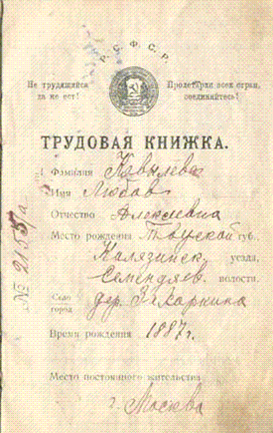 Р. С. Ф. С. Р.
Не трудящийся
да не ест!
Пролетарии всех стран,
соединяйтесь!
ТРУДОВАЯ КНИЖКА.
1. Фамилия
Имя Любовь
Отчество Алексеевна
Место рождения Тверской губ.,
Калязинск. уезда,
Семендяев. волости.
Село
город
дер.
Время рождения 1887 г.
Место постоянного жительства
г. Москва
№ 2155